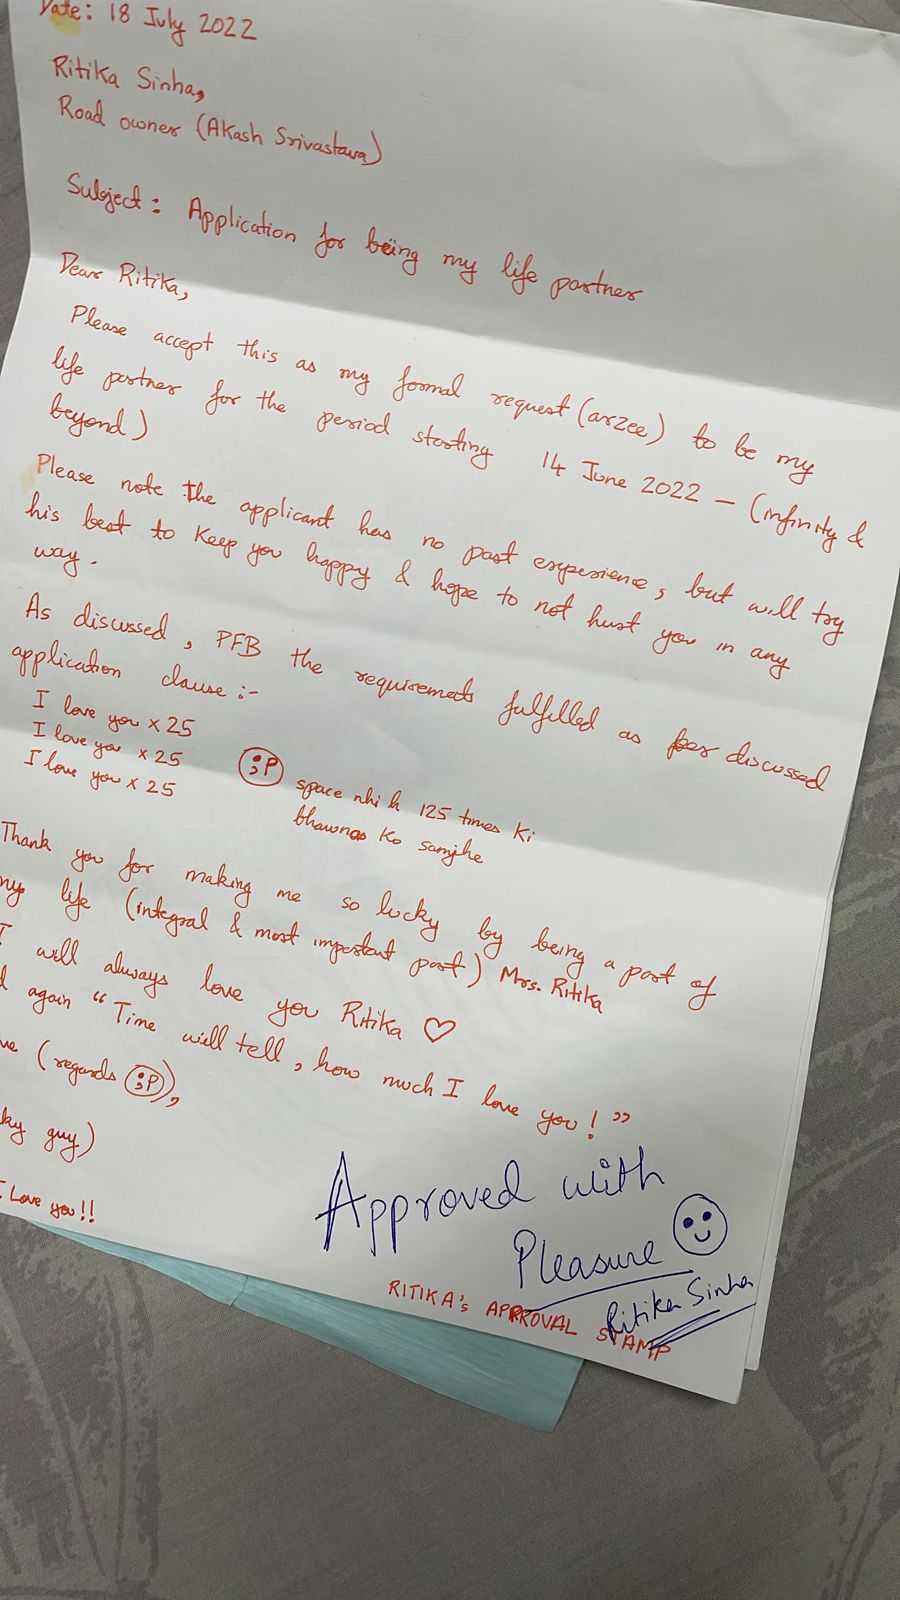 Date: 18 July 2022
Ritika Sinha,
Road owner (Akash Srivastava)
Subject: Application for being my life partner
Dear Ritika,
Please accept this as my formal request (arzee) to be my
life partner for the period starting 14 June 2022 – (infinity &
beyond)
Please note the applicant has no past experience, but will try
his best to keep you happy & hope to not hurt you in any
way.
As discussed, PFB the requiremets fulfilled as per discussed
application clause :-
I love you x 25
I love you x 25
I love you x 25
;P space nhi h 125 times ki
bhawnao ko samjhe
Thank you for making me so lucky by being a part of
my life (integral & most important part) Mrs. Ritika
I will always love you Ritika ♡
again "Time will tell, how much I love you!"
(regards ;P),
guy)
I Love you!!
Approved with
Pleasure
Ritika Sinha
RITIKA's APPROVAL STAMP